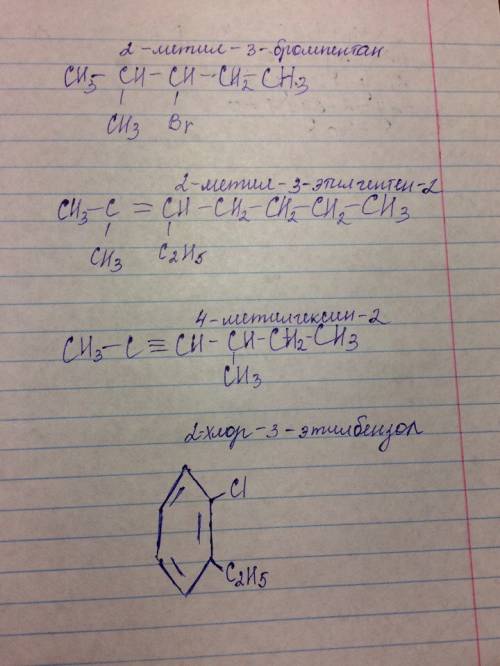 2-метил-3-бромпентан
CH3-CH-CH-CH2-CH3
CH3 Br
2-метил-3-этилгептен-2
CH3-C=CH-CH2-CH2-CH2-CH3
CH3 C2H5
4-метилгексин-2
CH3-C≡CH-CH-CH2-CH3
CH3
2-хлор-3-этилбензол
Cl
C2H5